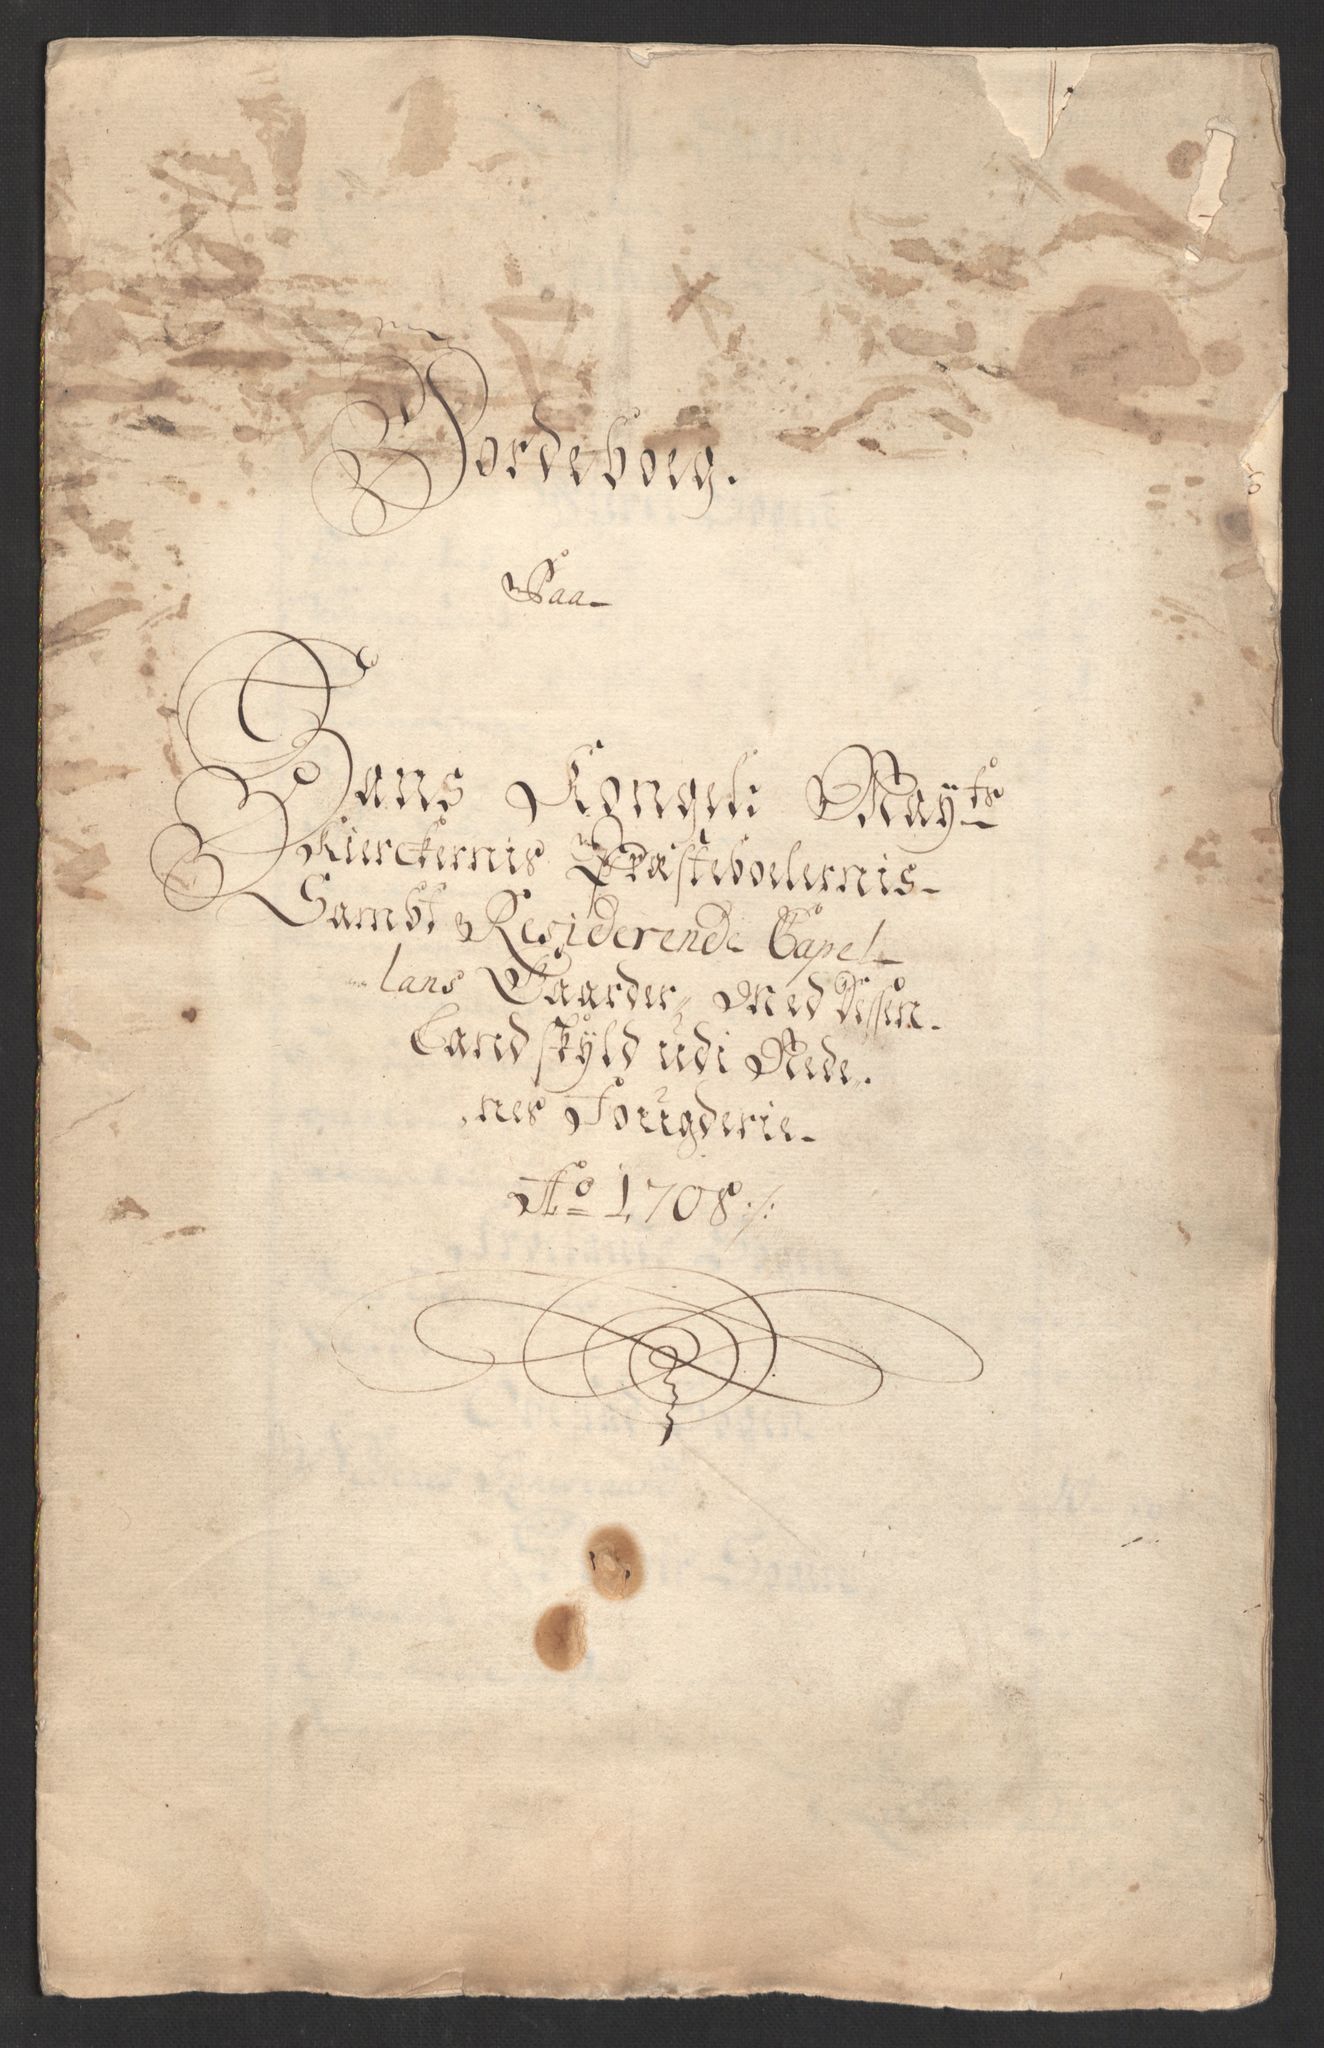 Jordeboeg.
Paa
Hans Kongel: Mayts
Kierckernis Præsteboelernis
Sambt Residerende Capel-
lans Gaarder, Med Dessen
Landskyld udi Nede-
nes Fougderie
Ao 1708 ./.